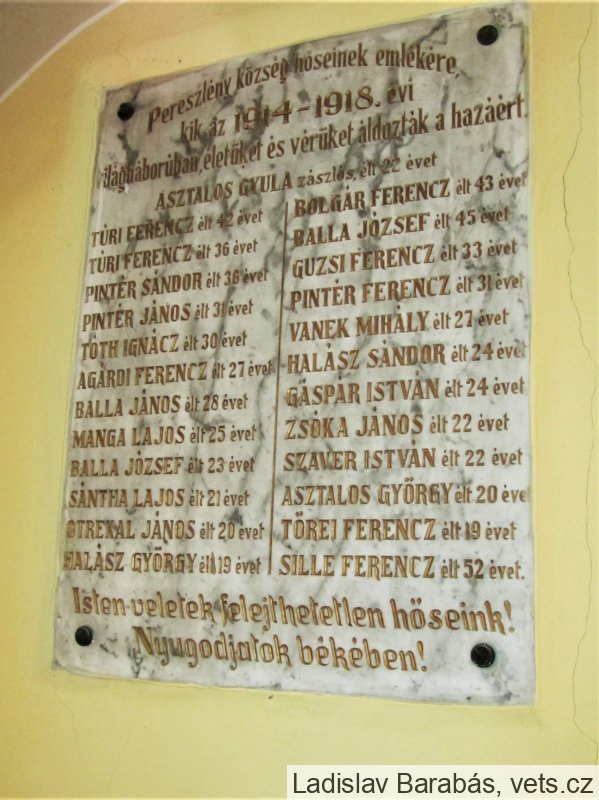 Pereszlény község hőseinek emlékére,
kik az 1914-1918. évi
világháboruban, életüket és vérüket áldozták a hazáért.
ASZTALOS GYULA zászlós, élt 22 évet
TÚRI FERENCZ élt 42 évet
TÚRI FERENCZ élt 36 évet
PINTÉR SÁNDOR élt 36 évet
PINTÉR JÁNOS élt 31 évet
TÓTH IGNÁCZ élt 30 évet
AGÁRDI FERENCZ élt 27 évet
BALLA JÁNOS élt 28 évet
MANGA LAJOS élt 25 évet
BALLA JÓZSEF élt 23 évet
SÁNTHA LAJOS élt 21 évet
OTREKAL JÁNOS élt 20 évet
HALÁSZ GYÖRGY élt 19 évet
BOLGÁR FERENCZ élt 43 évet
BALLA JÓZSEF élt 45 évet
GUZSI FERENCZ élt 33 évet
PINTÉR FERENCZ élt 31 évet
VANEK MIHÁLY élt 27 évet
HALÁSZ SÁNDOR élt 24 évet
GÁSPÁR ISTVÁN élt 24 évet
ZSÓKA JÁNOS élt 22 évet
SZAVER ISTVÁN élt 22 évet
ASZTALOS GYÖRGY élt 20 évet
TŐREI FERENCZ élt 19 évet
SILLE FERENCZ élt 52 évet.
Isten veletek felejthetetlen hőseink!
Nyugodjatok békében!
Ladislav Barabás, vets.cz